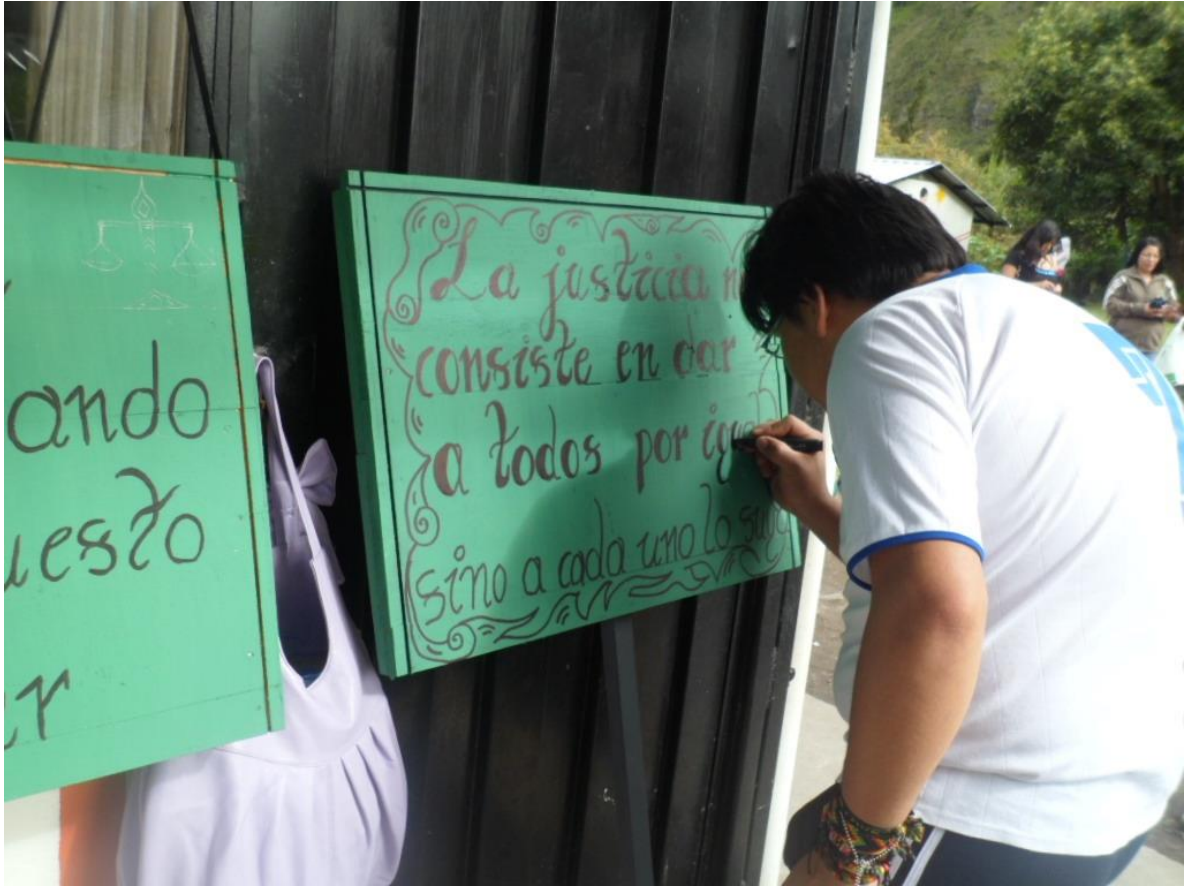 ando
uesto
er
La justicia n
consiste en dar
a todos por igu
sino a cada uno lo suyo